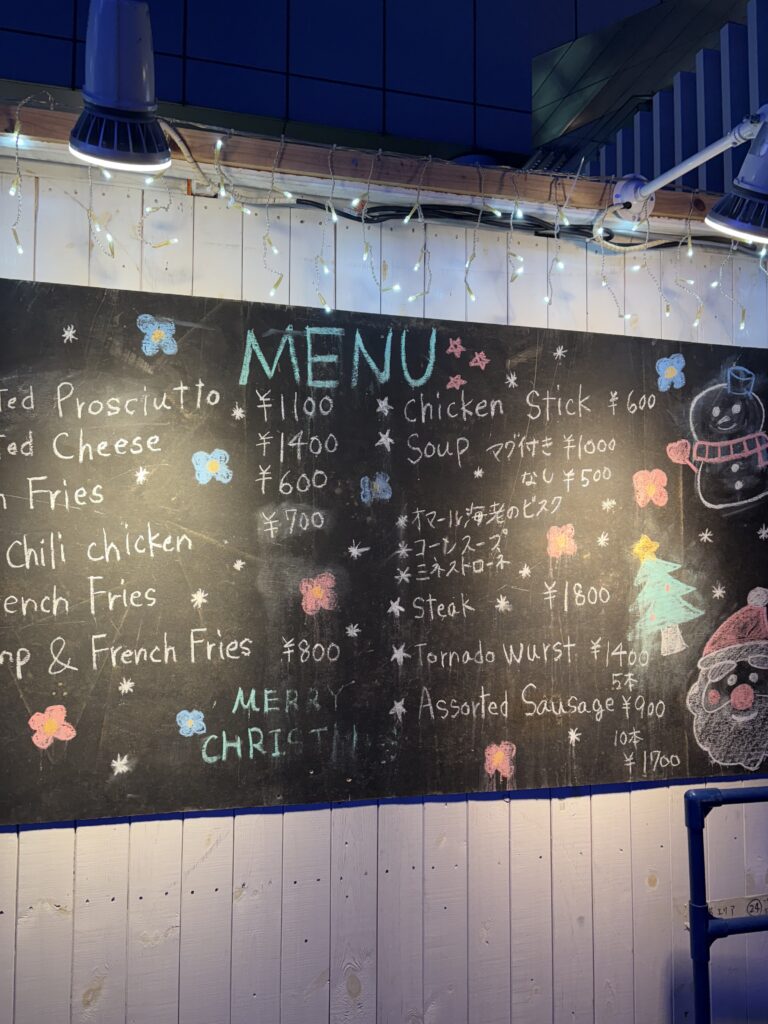 MENU
Prosciutto ¥1100
Cheese ¥1400
Fries ¥600
¥700
Chili chicken
Fries
& French Fries ¥800
MERRY
CHRISTMAS
Chicken Stick ¥600
Soup マグ付き ¥1000
なし ¥500
オマール海老のビスク
コーンスープ
ミネストローネ
Steak ¥1800
Tornado Wurst ¥1400
5本
Assorted Sausage ¥900
10本
¥1700
エリア 24